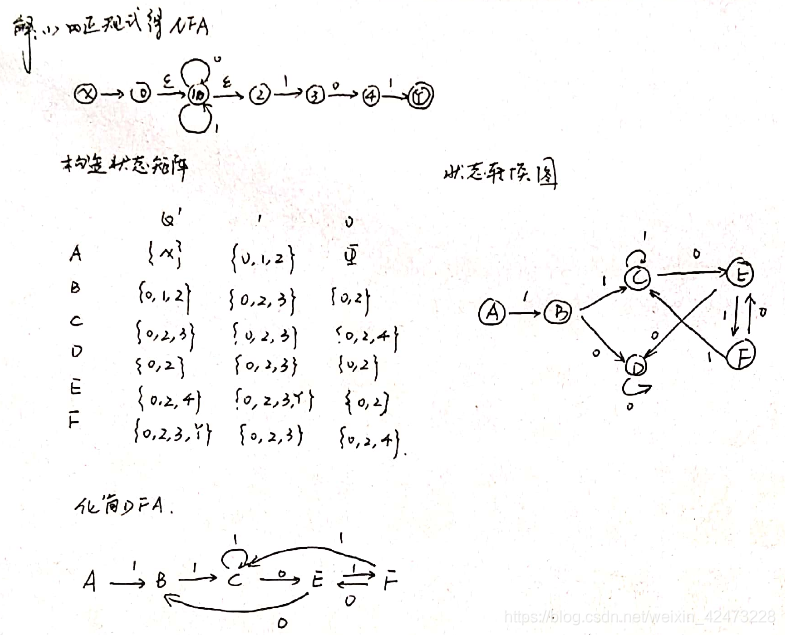 解:(1) 由正规式得NFA
X 0 ε 1 0 1 ε 2 1 3 0 4 1 Y
构造状态矩阵
状态转换图
Q' 1 0
A {X} {0,1,2} Φ
B {0,1,2} {0,2,3} {0,2}
C {0,2,3} {0,2,3} {0,2,4}
D {0,2} {0,2,3} {0,2}
E {0,2,4} {0,2,3,Y} {0,2}
F {0,2,3,Y} {0,2,3} {0,2,4}.
A 1 B 1 C 1 0 E 0 D 0 0 1 0 F 1
化简DFA.
A 1 B 1 C 1 0 E 1 0 F 1
0
https://blog.csdn.net/weixin_42473228